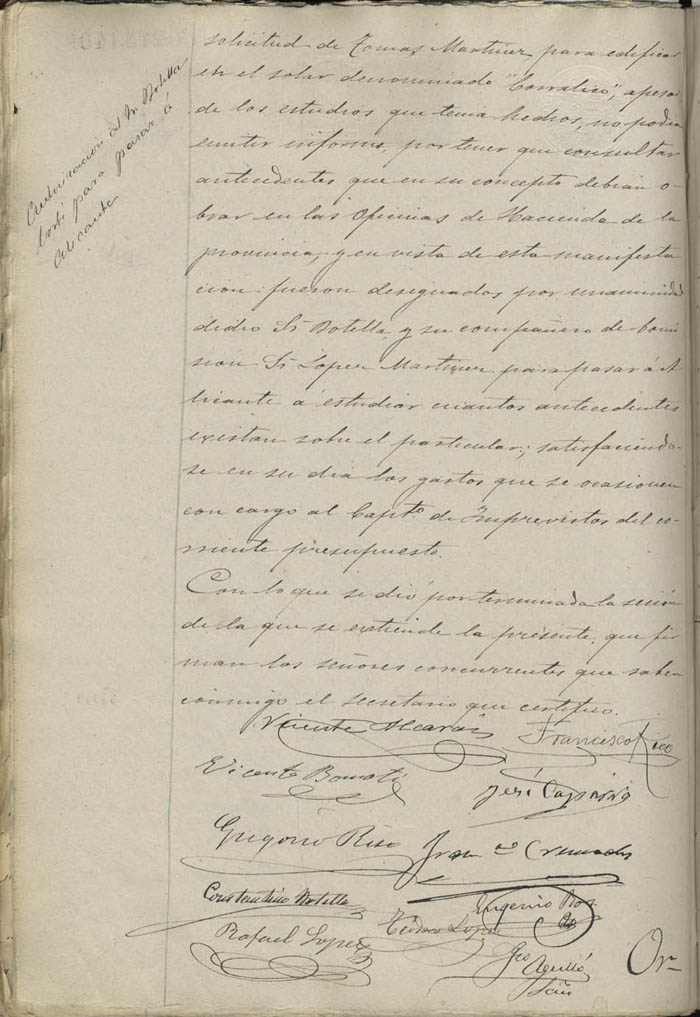 solicitud de Tomas Martinez para edificar
en el solar denominado "Corralico", apesar
de los estudios que tenia hechos, no podia
emitir informe, por tener que consultar
antecedentes que en su concepto debian o-
brar en las Oficinas de Hacienda de la
provincia, y en vista de esta manifesta
cion fueron designados por unanimidad
dicho Sr Botella y su compañero de Comi
sion Sr Lopez Martinez para pasar á A
licante á estudiar cuantos antecedentes
existan sobre el particular; satisfaciendo-
se en su dia los gastos que se ocasionen
con cargo al Capto. de Imprevistos del co-
rriente presupuesto.
Con lo que se dió por terminada la sesion
de la que se extiende la presente, que fir
man los señores concurrentes que saben
conmigo el secretario que certifico.
Autorizacion al Sr Botella
para pasar á
Alicante
Vicente Alcaráz Francisco Rico
Vicente Bonmatí José
Gregorio Rizo Franco Cremades
Constantino Botella Eugenio
Rafael Lopez Teodoro Lopez
Agulló
Srio
Or